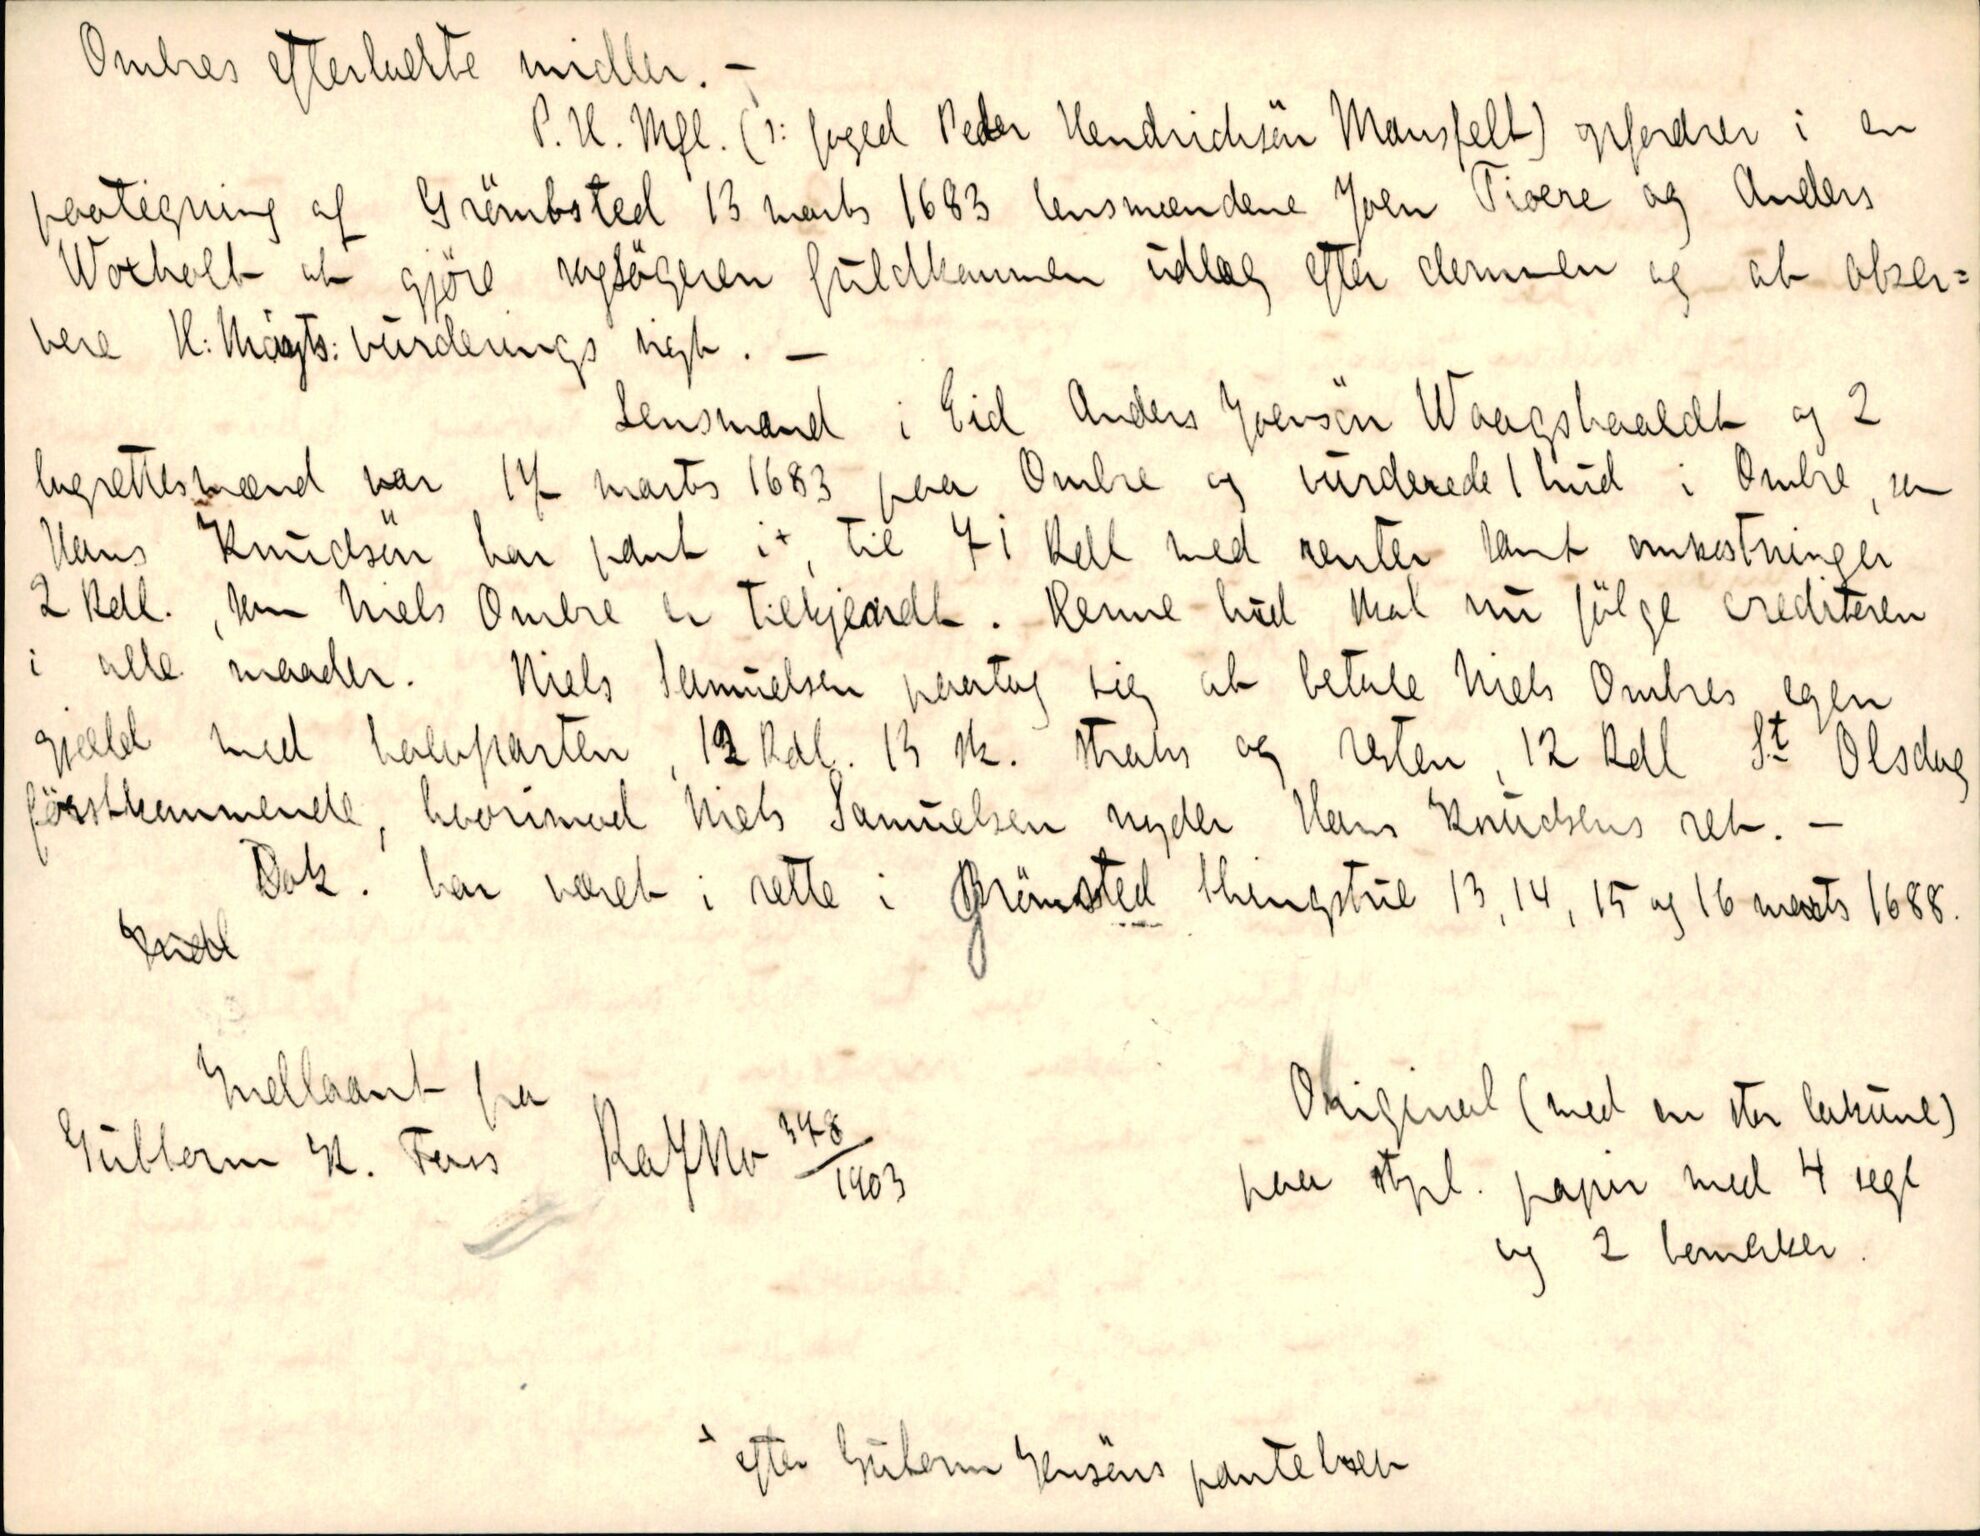 Ombres efterladte midler. –
P. H. Mfl. (ɔ: foged Peder Hendrichsön Mansfelt) opfordrer i en
paategning af Grömbsted 13 marts 1683 lensmændene Joen Tioere og Anders
Woxholt at gjöre sagsögeren fuldkommen udlæg efter dommen og at obser=
vere K: Mayts: vurderings rigt. –
Lensmand i Eid Anders Joensön Waagshaaldt og 2
lagrettesmænd var 17 marts 1683 paa Ombre og vurderede 1 hud i Ombre, som
Hans Knudsön har pant i+, til 71 Rdl med renter samt omkostninger
2 Rdl., som Niels Ombre er tilkjendt. Denne hud skal nu fölge creditoren
i alle maader. Niels Samuelsen paatog sig at betale Niels Ombres egen
gjæld med halvparten, 12 Rdl. 13 sk. straks og resten, 12 Rdl St Olsdag
förstkommende, hvorimod Niels Samuelsen nyder Hans Knudsens ret. –
Dok. har været i rette i Grömsted thingstue 13, 14, 15 og 16 marts 1688.
Indl
Indlaant fra
Gulborm K. Foss RaJNo 348/1903
Original (med en stor lakune)
paa stpl. papir med 4 segl
og 2 bomerker.
+ efter Guborm Jensöns pantebrev